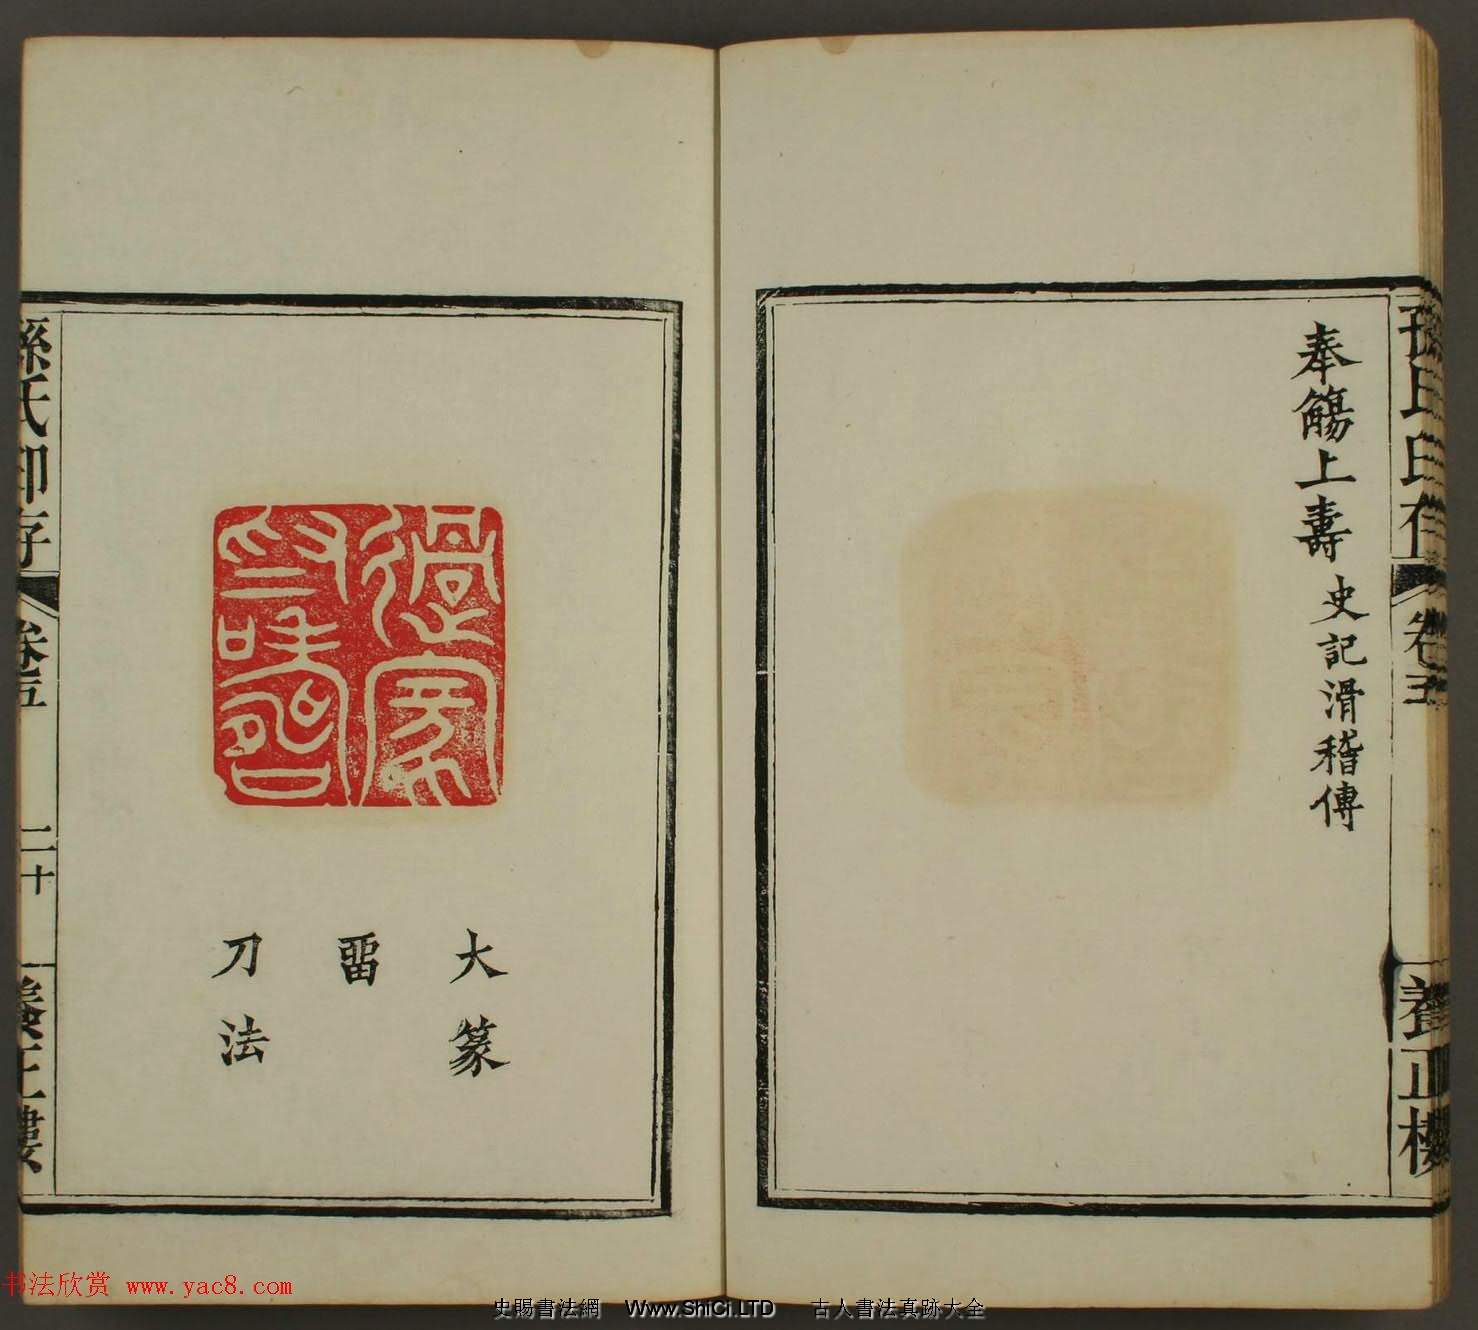 孫氏印存
卷五
養正樓
奉觴上壽
史記滑稽傳
大篆
畱
刀法
孫氏印存
卷五
二十
養正樓
书法欣赏 www.yac8.com
史賜書法網 Www.ShiCi.LTD 古人書法真跡大全